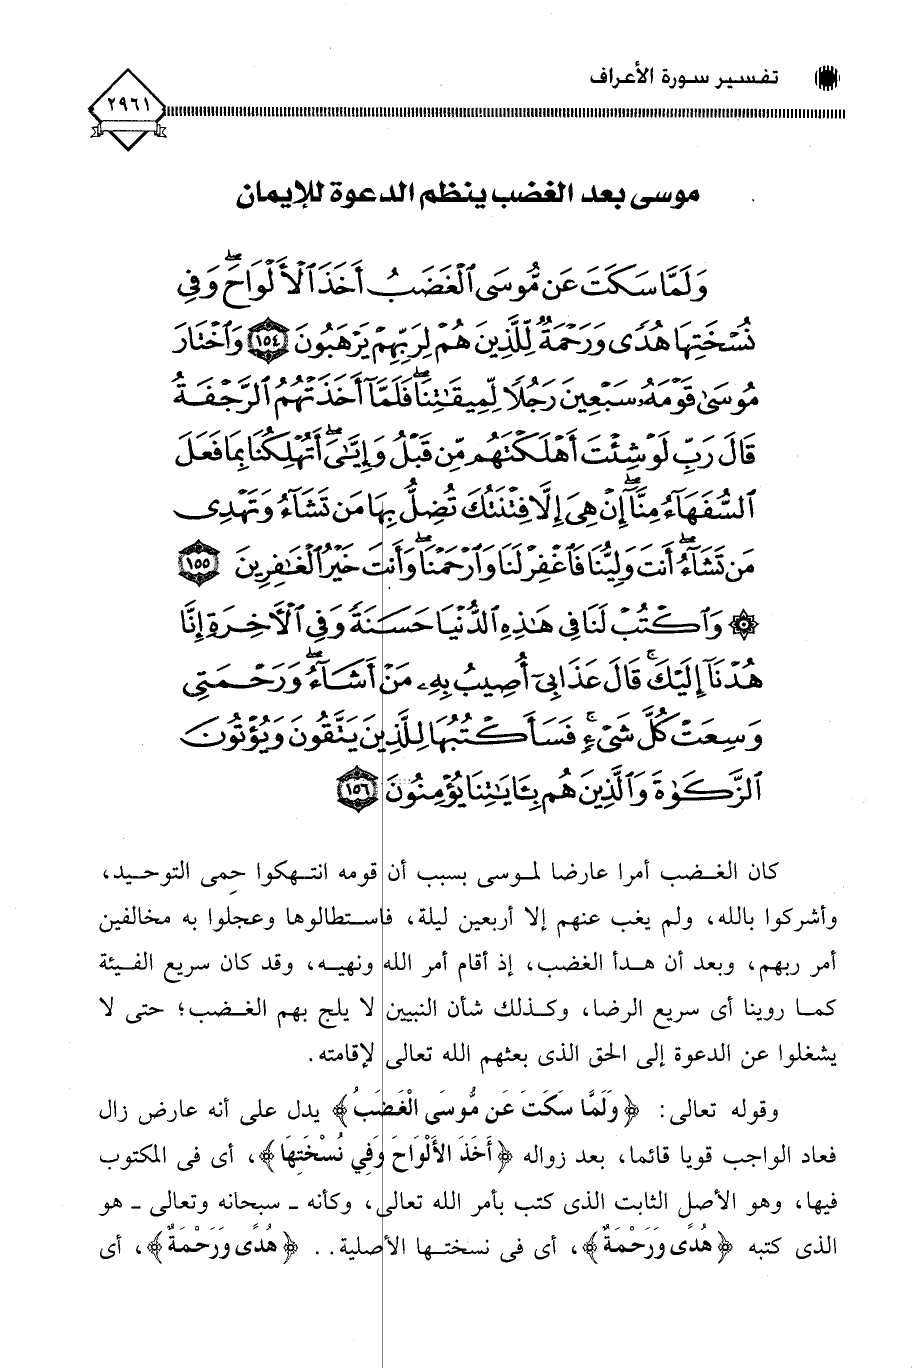 تفسير سورة الأعراف
٢٩٦١
موسى بعد الغضب ينظم الدعوة للإيمان
وَلَمَّا سَكَتَ عَن مُّوسَى ٱلْغَضَبُ أَخَذَ ٱلْأَلْوَاحَ ۖ وَفِى
نُسْخَتِهَا هُدًى وَرَحْمَةٌ لِّلَّذِينَ هُمْ لِرَبِّهِمْ يَرْهَبُونَ ١٥٤ وَٱخْتَارَ
مُوسَىٰ قَوْمَهُۥ سَبْعِينَ رَجُلًا لِّمِيقَٰتِنَا ۖ فَلَمَّآ أَخَذَتْهُمُ ٱلرَّجْفَةُ
قَالَ رَبِّ لَوْ شِئْتَ أَهْلَكْتَهُم مِّن قَبْلُ وَإِيَّٰىَ ۖ أَتُهْلِكُنَا بِمَا فَعَلَ
ٱلسُّفَهَآءُ مِنَّآ ۖ إِنْ هِىَ إِلَّا فِتْنَتُكَ تُضِلُّ بِهَا مَن تَشَآءُ وَتَهْدِى
مَن تَشَآءُ ۖ أَنتَ وَلِيُّنَا فَٱغْفِرْ لَنَا وَٱرْحَمْنَا ۖ وَأَنتَ خَيْرُ ٱلْغَٰفِرِينَ ١٥٥
۞ وَٱكْتُبْ لَنَا فِى هَٰذِهِ ٱلدُّنْيَا حَسَنَةً وَفِى ٱلْأَخِرَةِ إِنَّا
هُدْنَآ إِلَيْكَ ۚ قَالَ عَذَابِىٓ أُصِيبُ بِهِۦ مَنْ أَشَآءُ ۖ وَرَحْمَتِى
وَسِعَتْ كُلَّ شَىْءٍ ۚ فَسَأَكْتُبُهَا لِلَّذِينَ يَتَّقُونَ وَيُؤْتُونَ
ٱلزَّكَوٰةَ وَٱلَّذِينَ هُم بِـَٔايَٰتِنَا يُؤْمِنُونَ ١٥٦
كان الغضب أمرا عارضا لموسى بسبب أن قومه انتهكوا حِمى التوحيد،
وأشركوا بالله، ولم يغب عنهم إلا أربعين ليلة، فاستطالوها وعجلوا به مخالفين
أمر ربهم، وبعد أن هدأ الغضب، إذ أقام أمر الله ونهيه، وقد كان سريع الفيئة
كما روينا أى سريع الرضا، وكذلك شأن النبيين لا يلج بهم الغضب؛ حتى لا
يشغلوا عن الدعوة إلى الحق الذى بعثهم الله تعالى لإقامته.
وقوله تعالى: ﴿وَلَمَّا سَكَتَ عَن مُّوسَى الْغَضَبُ﴾ يدل على أنه عارض زال
فعاد الواجب قويا قائما، بعد زواله ﴿أَخَذَ الأَلْوَاحَ وَفِي نُسْخَتِهَا﴾، أى فى المكتوب
فيها، وهو الأصل الثابت الذى كتب بأمر الله تعالى، وكأنه ـ سبحانه وتعالى ـ هو
الذى كتبه ﴿هُدًى وَرَحْمَةٌ﴾، أى فى نسختها الأصلية.. ﴿هُدًى وَرَحْمَةٌ﴾، أى